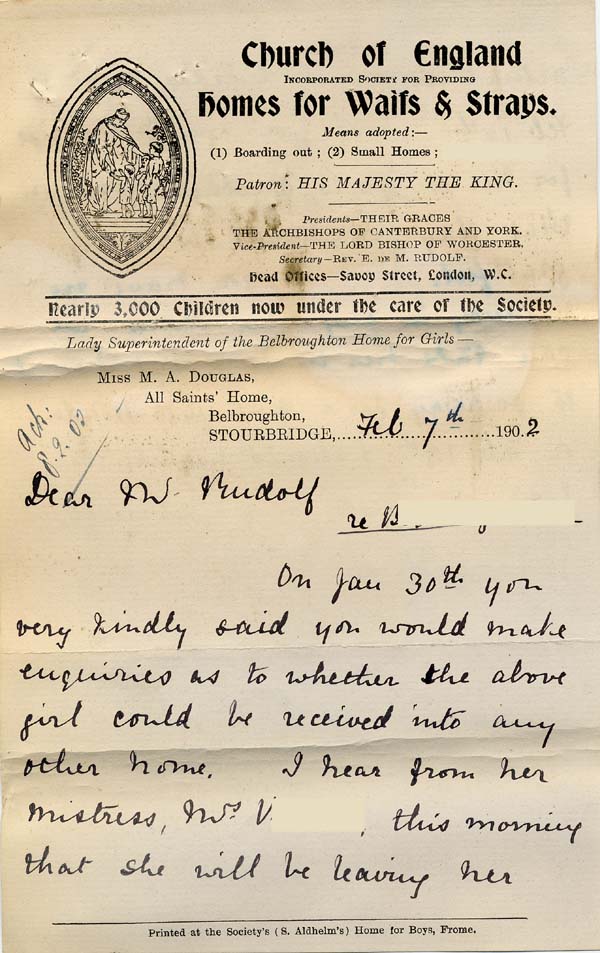 Church of England
Incorporated Society for Providing
Homes for Waifs & Strays.
Means adopted:—
(1) Boarding out ; (2) Small Homes ;
Patron: HIS MAJESTY THE KING.
Presidents—THEIR GRACES
THE ARCHBISHOPS OF CANTERBURY AND YORK.
Vice-President—THE LORD BISHOP OF WORCESTER.
Secretary—Rev. E. de M. RUDOLF.
Head Offices—Savoy Street, London, W.C.
Nearly 3,000 Children now under the care of the Society.
Lady Superintendent of the Belbroughton Home for Girls—
Miss M. A. Douglas,
All Saints' Home,
Belbroughton,
STOURBRIDGE, Feb 7th 1902
Ack:
8.2.02
Dear Mr Rudolf
re B
On Jan 30th you
very kindly said you would make
enquiries as to whether the above
girl could be received into any
other home. I hear from her
mistress, Mrs V , this morning
that she will be leaving her
Printed at the Society's (S. Aldhelm's) Home for Boys, Frome.